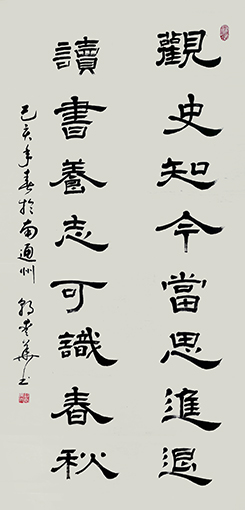 觀史知今當思進退
讀書養志可識春秋
己亥年春於南通州 郭棠華书